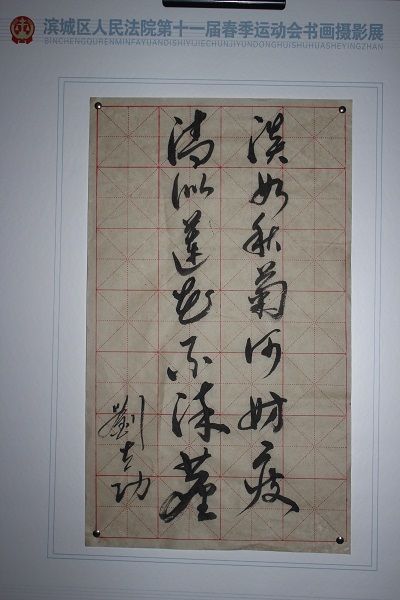 滨城区人民法院第十一届春季运动会书画摄影展
BINCHENGQURENMINFAYUANDISHIYIJIECHUNJIYUNDONGHUISHUHUASHEYINGZHAN
淡如秋菊何妨瘦
清似蓮花不染塵